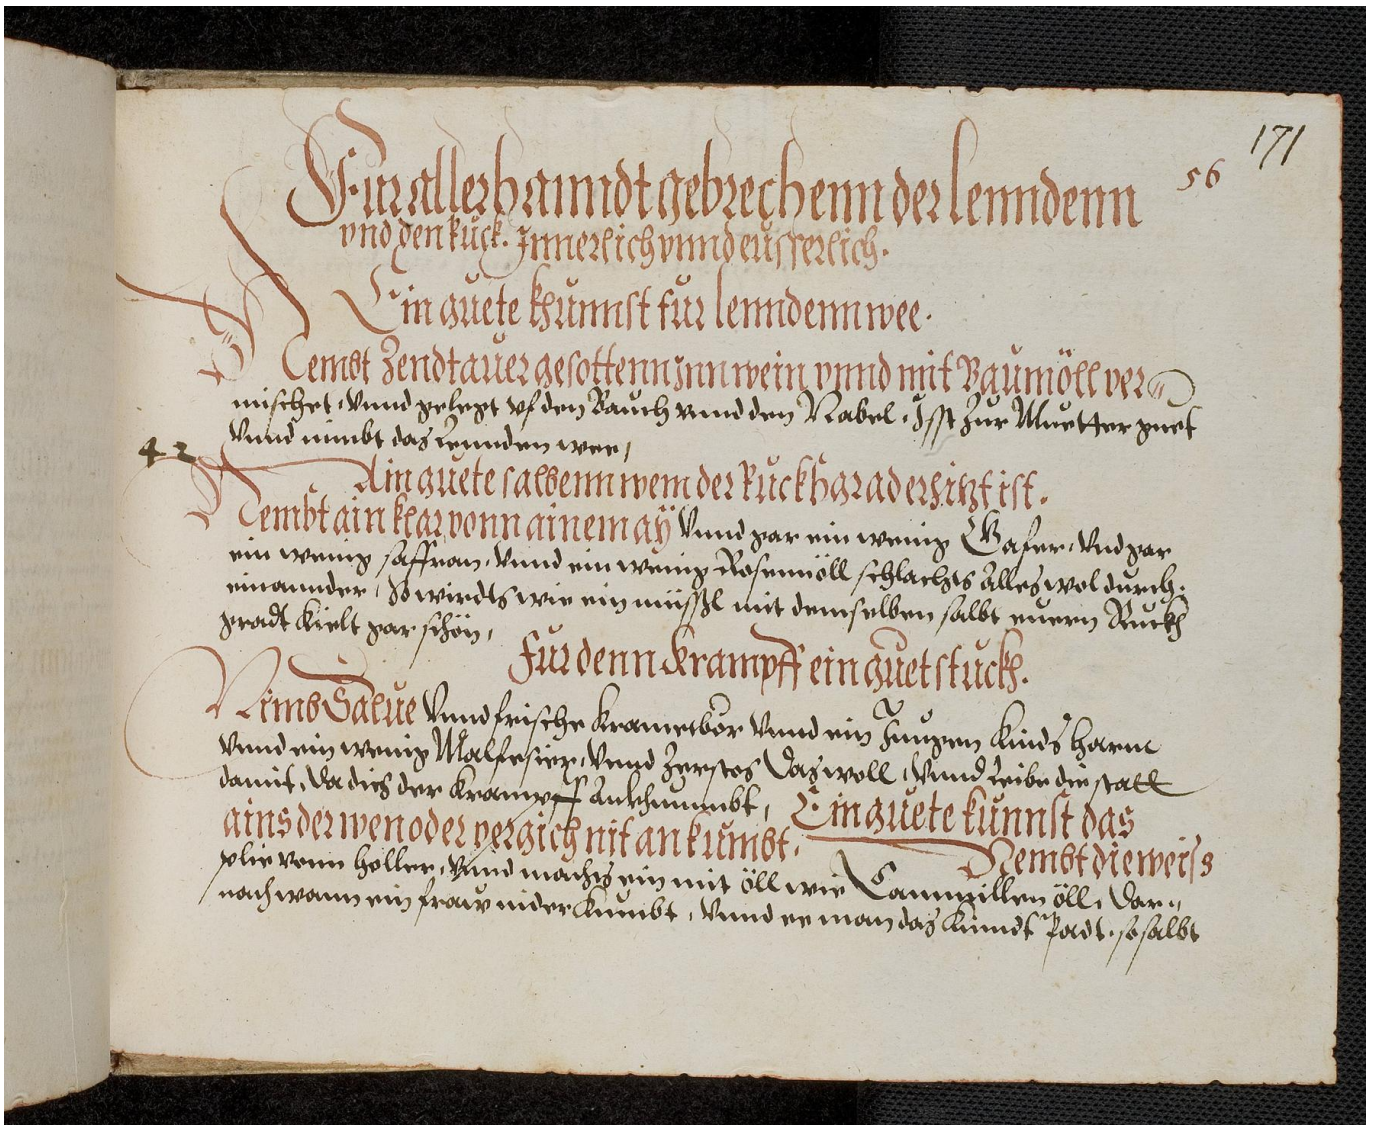 171
56
Für allerhanndt gebrechenn der lenndenn
vnd den Rück. Innerlich vnnd eüsserlich.
Ein guete khunnst für lenndenn wee.
Nembt Zendtauer gesottenn Inn wein vnnd mit Baumöll ver
mischet, vnnd gelegt vf den Bauch vnnd den Nabel, Isst Zur Muetter guet
vnnd nimbt das Lennden wee,
42
Ain guete salbenn wem der Rückhgrad erhitzt ist.
Nembt ain klar vonn ainem aÿ vnnd gar ein wenig Gafer, vnd gar
ein wenig saffran, vnnd ein wenig Rosennöll schlachts alles wol durch
einannder, So wirdts wie ein müssl mit demselben salbt euern Ruckh
gradt kielt gar schön,
Für denn Krampff ein guet stückh.
Nimb Salue vnnd frische Kranetbör vnnd ein Jungen Kinds harm
vnnd ein wenig Malfesier, vnnd Zerstos das woll, vnnd Reibe die statt
damit, da dich der Krampff ankhumbt,
Ein guete kunnst das
ains der wen oder vergich nit ankumbt.
Nembt die weiss
plie vonn holler, vnnd machs ein mit öll wie Cammillen öll, dar-
nach wann ein fraw nider kumbt, vnnd ee man das Kindt Padt, so salbt